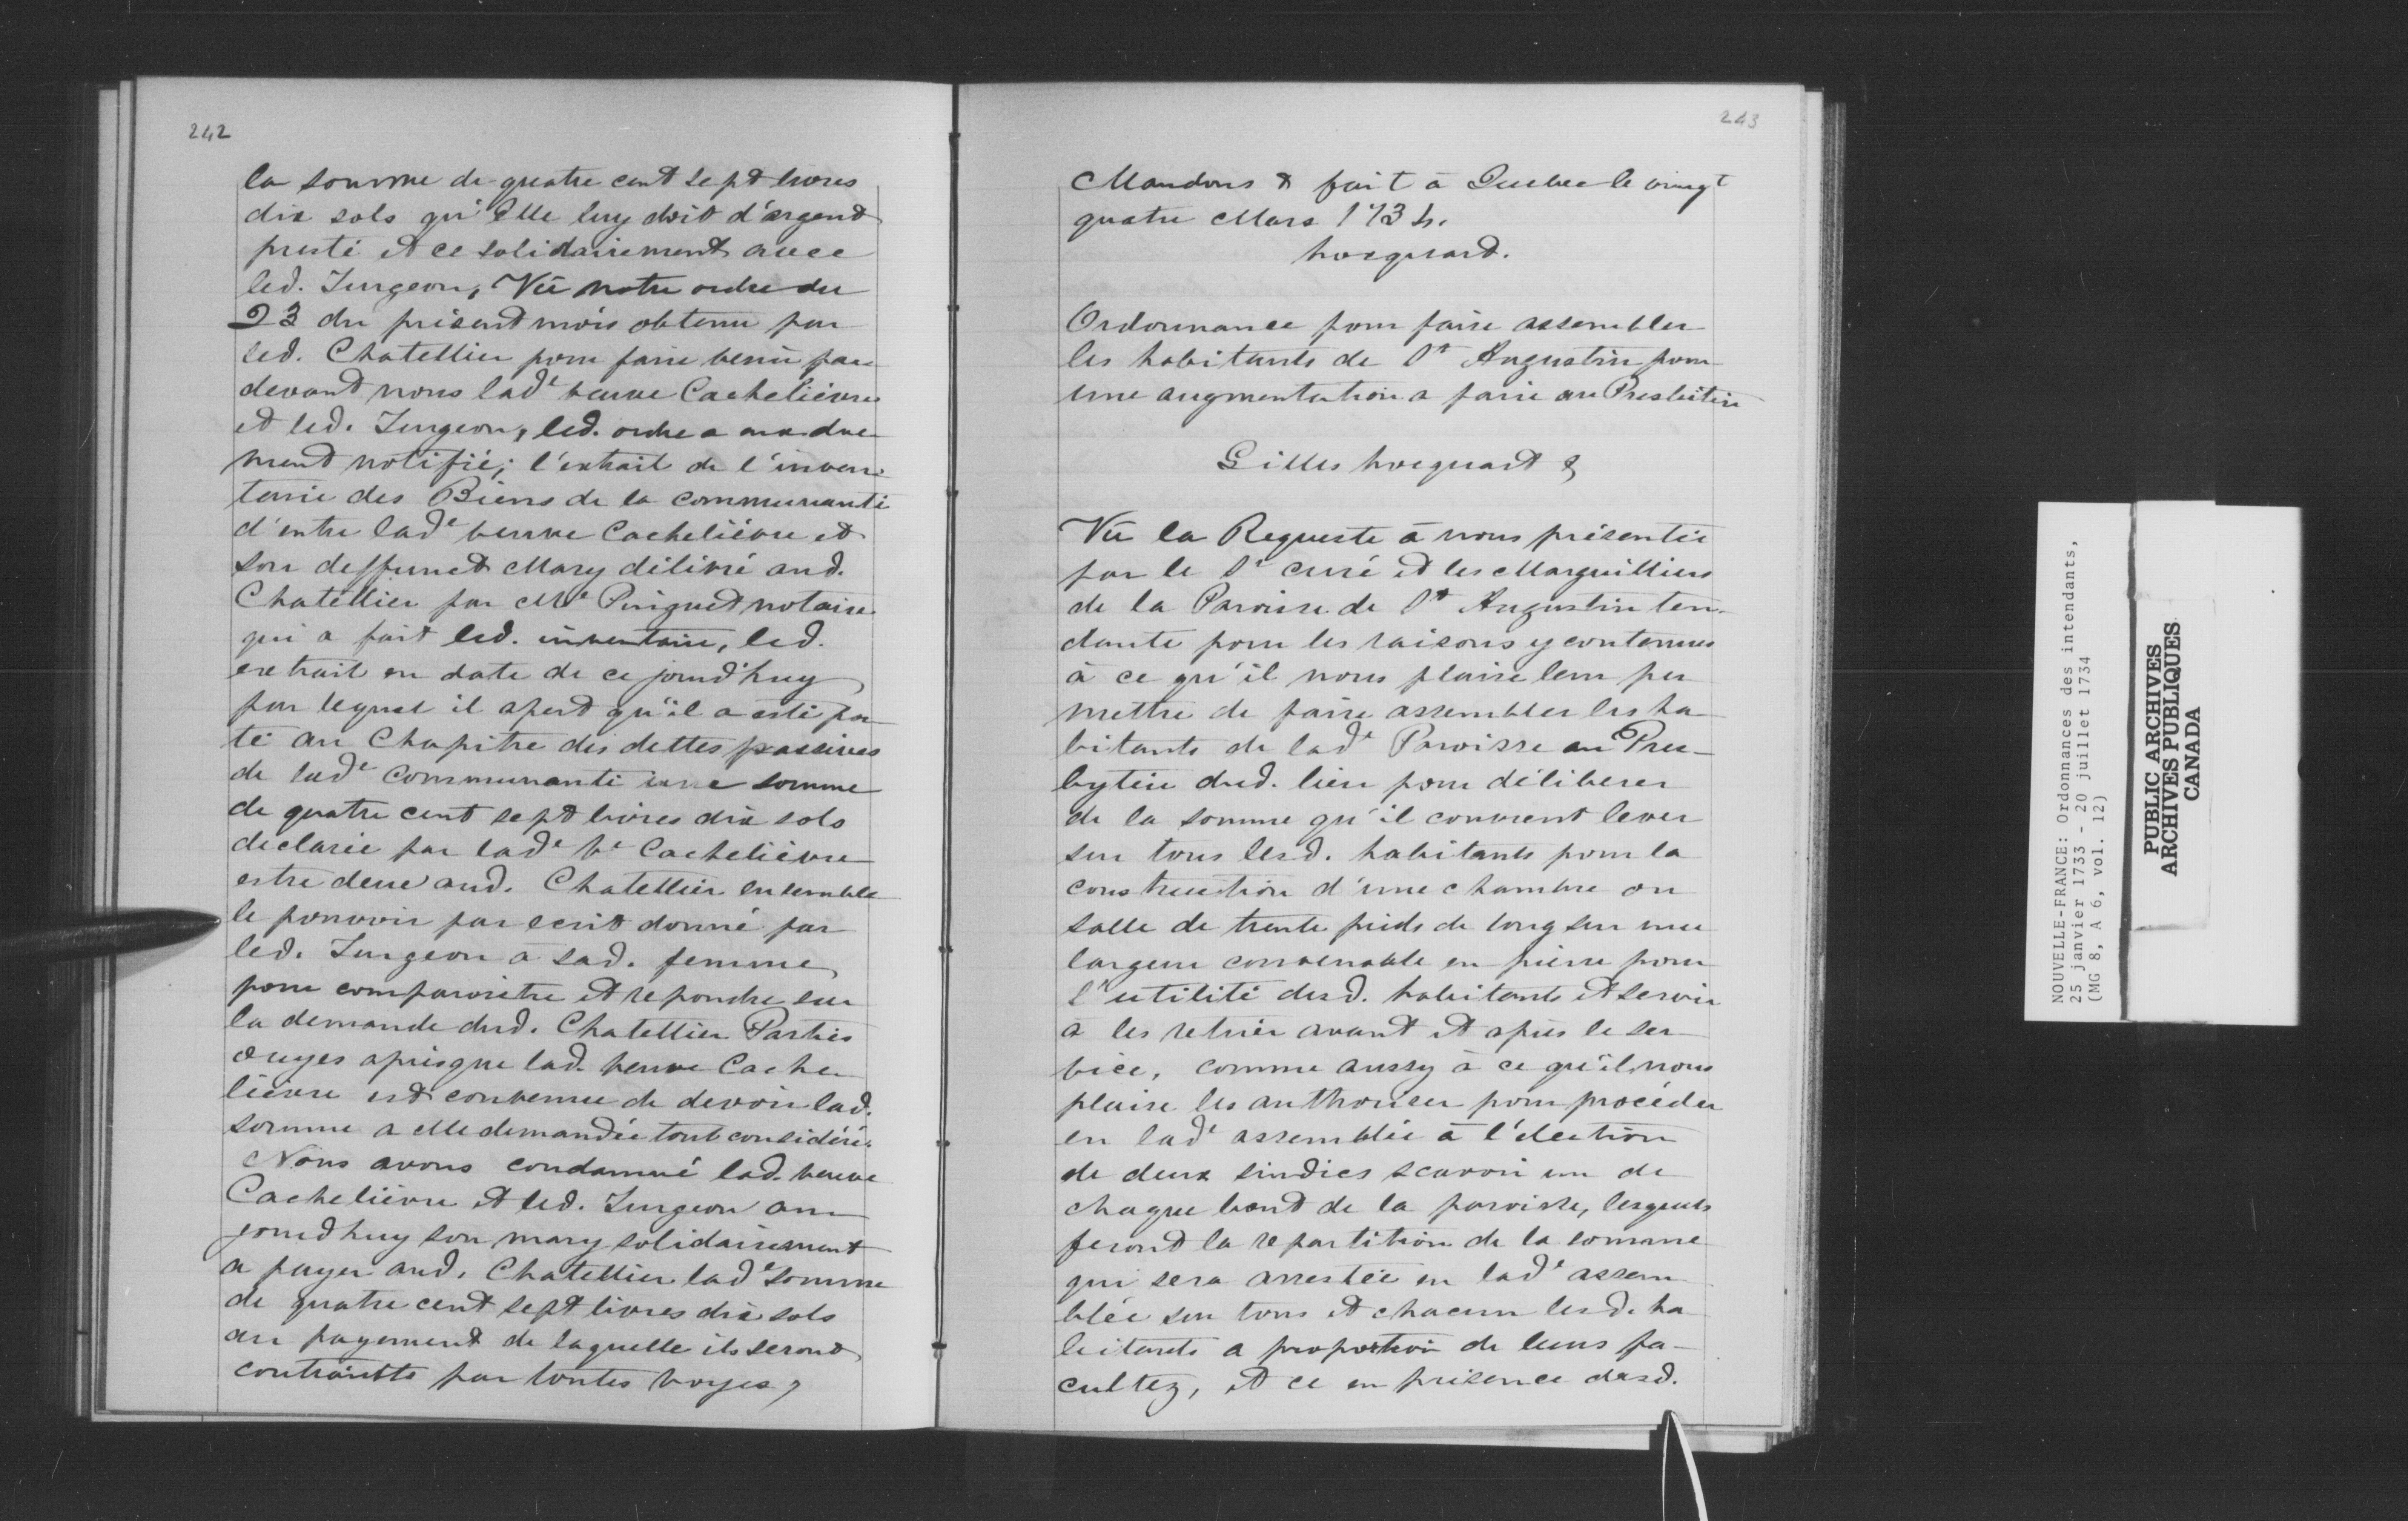 242
la somme de quatre cent sept livres
dix sols qu'Elle luy doit d'argent
presté et ce solidairement avec
led. Turgeon, Vû notre ordre du
23 du présent mois obtenu par
led. Chatellier pour faire venir par
devant nous lad^e veuve Cachelièvre
et led. Turgeon, led. ordre a eux due
ment notifié; l'extrait de l'inven
taire des Biens de la communauté
d'entre lad^e veuve Cachelièvre et
son deffunct Mary délivré aud.
Chatellier par M^e Pinguet notaire
qui a fait led. inventaire, led.
extrait en date de ce jourd'huy
par lequel il apert qu'il a esté por
té au Chapitre des dettes passives
de lad^e Communauté une somme
de quatre cent sept livres dix sols
declarée par lad^e V^e Cachelièvre
estre deue aud. Chatellier ensemble
le pouvoir par ecrit donné par
led. Turgeon à sad. femme
pour comparoistre et repondre sur
la demande dud. Chatellier Parties
ouyes après que lad. veuve Cache
lièvre est convenue de devoir lad.
somme a elle demandée tout considéré.
Nous avons condamné lad. veuve
Cachelièvre et led. Turgeon au
jourdhuy son mary solidairement
a payer aud. Chatellier lad^e somme
de quatre cent sept livres dix sols
au payement de laquelle ils seront
contraints par toutes voyes,
243
Mandons & fait à Quebec le vingt
quatre Mars 1734.
hocquard.
Ordonnance pour faire assembler
les habitants de S^t Augustin pour
une augmentation a faire au Presbitère
Gilles hocquart &
Vû la Requeste à nous présentée
par le S^r curé et les Marguilliers
de la Paroisse de S^t Augustin ten-
dante pour les raisons y contenues
à ce qu'il nous plaise leur per
mettre de faire assembler les ha
bitants de lad^e Paroisse au Pres-
bytère dud. lieu pour déliberer
de la somme qu'il convient lever
sur tous lesd. habitants pour la
construction d'une chambre ou
salle de trente pieds de long sur une
largeur convenable en pierre pour
l'utilité desd. habitants et servir
à les retirer avant et après le ser
vice, comme aussy à ce qu'il nous
plaise les authoriser pour procéder
en lad^e assemblée à l'élection
de deux sindics scavoir un de
chaque bout de la paroisse, lesquels
feront la repartition de la somme
qui sera arrestée en lad^e assem
blée sur tous et chacun lesd. ha
bitants a proportion de leurs fa-
cultez, et ce en présence desd.
NOUVELLE-FRANCE: Ordonnances des intendants,
25 janvier 1733 - 20 juillet 1734
(MG 8, A 6, vol. 12)
PUBLIC ARCHIVES
ARCHIVES PUBLIQUES
CANADA